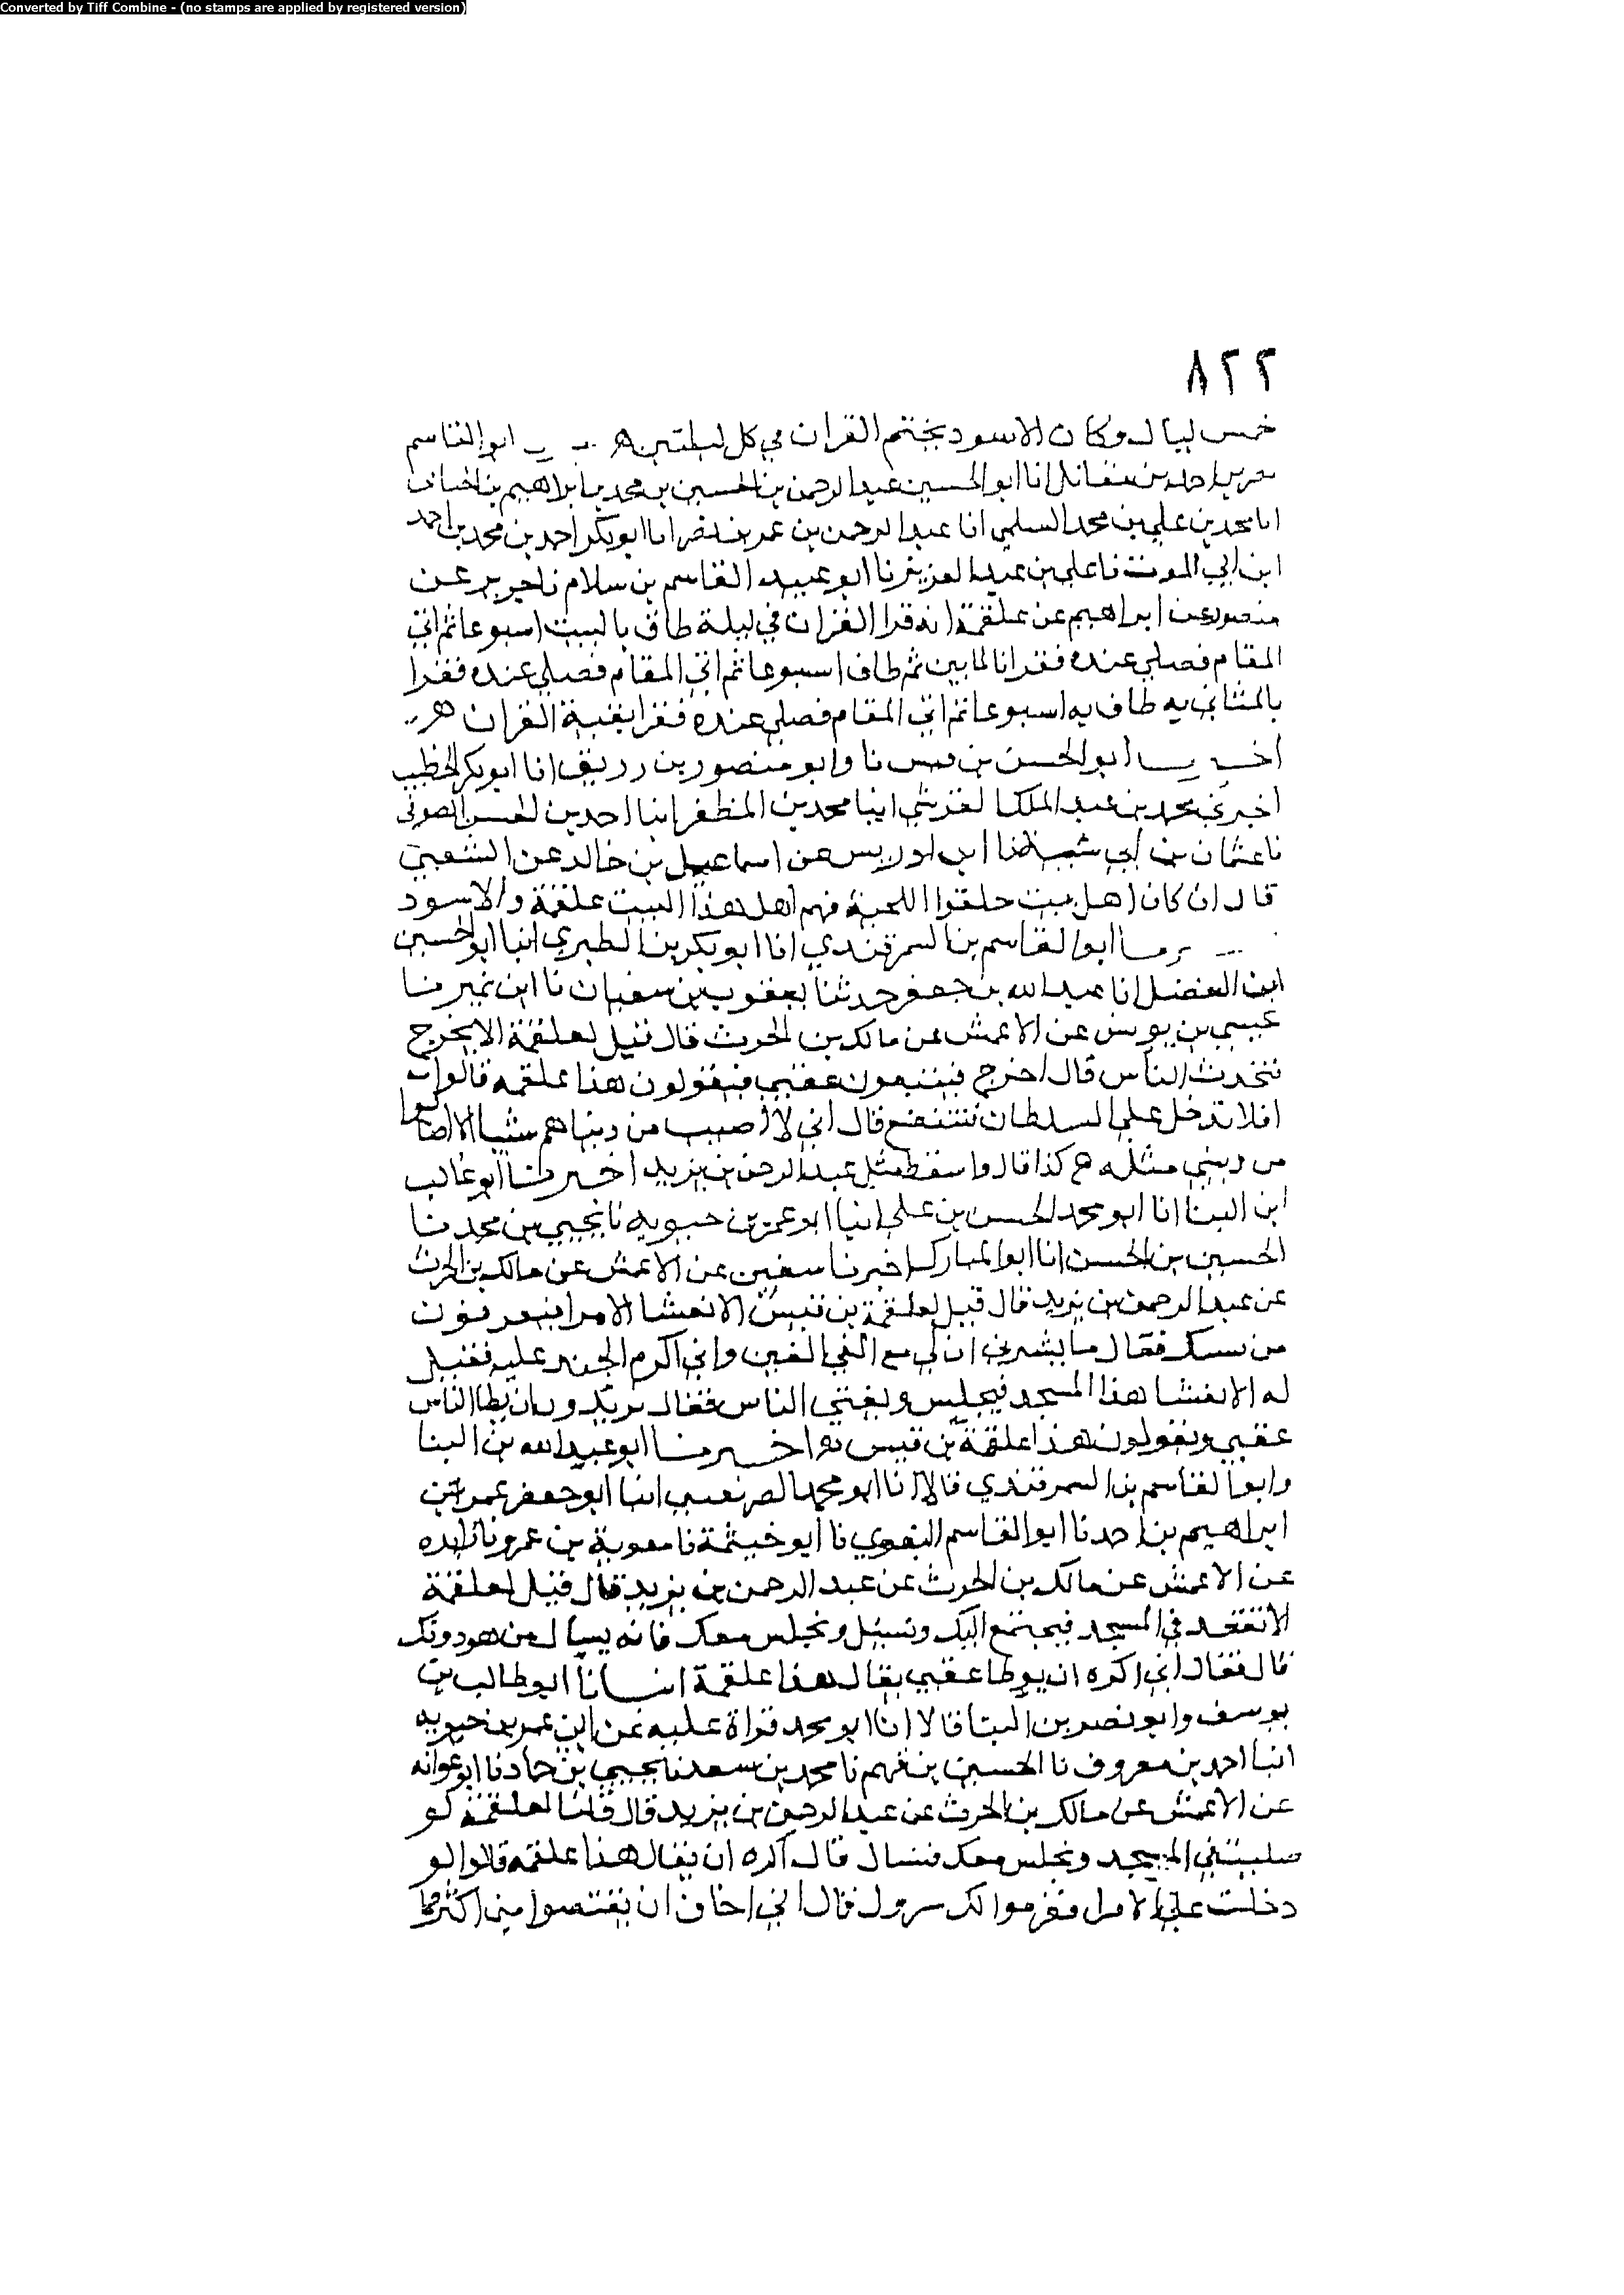 Converted by Tiff Combine - (no stamps are applied by registered version)
٨٢٢
خمس ليال وكان الاسود يختم القران في كل ليلتين ه ابو القاسم
احمد بن مقاتل انا ابو الحسين عبد الرحمن بن الحسين بن محمد بن ابراهيم بن الحنائ
انا محمد بن علي بن محمد السلمي انا عبد الرحمن بن عمر بن نصر انا ابو بكر احمد بن محمد بن احمد
ابن ابي الموت نا علي بن عبد العزيز نا ابو عبيد القاسم بن سلام نا جرير عن
منصور عن ابراهيم عن علقمة انه قرا القران في ليلة طاف بالبيت اسبوعا ثم اتي
المقام فصلي عنده فقرا بالمايين ثم طاف اسبوعا ثم اتي المقام فصلي عنده فقرا
بالمثاني يه طاف به اسبوعا ثم اتي المقام فصلي عنده فقرا بقية القران ه
ابو الحسن بن قبيس نا وابو منصور بن زريق انا ابو بكر الخطيب
اخبرني محمد بن عبد الملك القرشي ابنا محمد بن المظفر ابنا احمد بن الحسن الصوفي
نا عثمان بن ابي شيبة نا ابن ادريس عن اسماعيل بن خالد عن الشعبي
قال ان كان اهل بيت خلقوا للجنة فهم اهل هذا البيت علقمة والاسود
ابو القاسم بن السمرقندي انا ابو بكر بن الطبري انبا ابو الحسين
ابن الفضل انا عبد الله بن جعفر حدثنا يعقوب بن سفيان نا ابن نمير نا
عيسي بن يونس عن الاعمش عن مالك بن الحرث قال قيل لعلقمة الا تخرج
تحدث الناس قال اخرج فيتبعون عقبي فيقولون هذا علقمه قالوا
افلا تدخل علي السلطان تشفع قال اني لا اصيب من دنياهم شيا الا اصابوا
من ديني مثله ه كذا قال واسقط عبد الرحمن بن يزيد اخبرنا ابو غالب
ابن البنا انا ابو محمد الحسن بن علي انبا ابو عمر بن حيويه نا يحيي بن محمد نا
الحسين بن الحسن انا ابو المبارك اخبرنا سفين عن الاعمش عن مالك بن الحرث
عن عبد الرحمن بن يزيد قال قيل لعلقمة بن قيس الا تغشا الامرا فيعرفون
من نسبك فقال ما يسرني ان لي مع الفي الفين واني اكرم الجند عليه فقيل
له الا تغشا هذا المسجد فيجلس وتفتي الناس فقال تريدون ان يطا الناس
عقبي ويقولون هذا علقمة بن قيس ه اخبرنا ابو عبد الله بن البنا
وابو القاسم بن السمرقندي قالا انا ابو محمد الصريفيني انبا ابو حفص عمر بن
ابراهيم بن احمد نا ابو القاسم البغوي نا ابو خيثمة نا معوية بن عمرو نا زايده
عن الاعمش عن مالك بن الحرث عن عبد الرحمن بن يزيد قال قيل لعلقمة
الا تقعد في المسجد فيجتمع اليك وتسئل ونجلس معك فانه يسال من هو دونك
قال فقال اني اكره ان يوطا عقبي يقال هذا علقمة انبانا ابو طالب بن
يوسف وابو نصر بن البنا قالا انا ابو محمد قراة عليه عن ابن عمر بن حيويه
انبا احمد بن معروف نا الحسين بن فهم نا محمد بن سعد نا يحيي بن حماد نا ابو عوانه
عن الاعمش عن مالك بن الحرث عن عبد الرحمن بن يزيد قال قلنا لعلقمة لو
صليت في المسجد ونجلس معك فتسال قال اكره ان يقال هذا علقمه قالوا لو
دخلت علي الامرا فعرفوا لك قال اني اخاف ان ينتقصوا مني اكثر مما